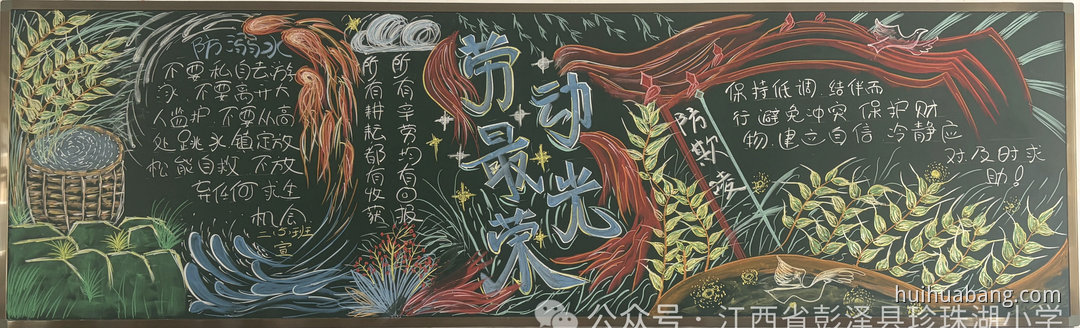 防溺水
不要私自去游
泳.不要离开大
人监护.不要从高
处跳水镇定放
松能自救 不放
弃任何求生
机会
二(5)班
宣
所有辛劳均有回报
所有耕耘都有收获
劳动
最光
荣
防欺凌
保持低调.结伴而
行避免冲突 保护财
物.建立自信 冷静应
对及时求
助!
huihuabang.com
公众号·江西省彭泽县珍珠湖小学